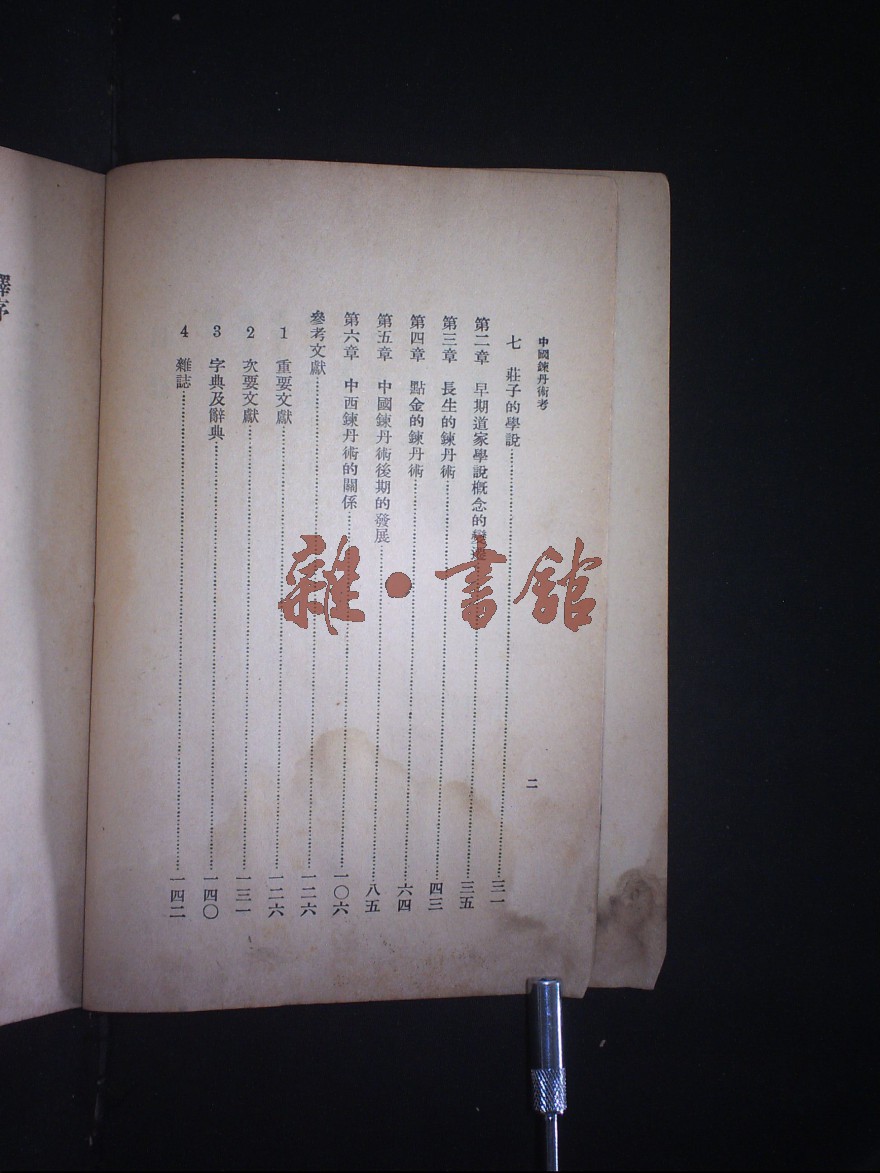 中國鍊丹術考
二
七 莊子的學說 三一
第二章 早期道家學說概念的變遷 三五
第三章 長生的鍊丹術 四三
第四章 點金的鍊丹術 六四
第五章 中國鍊丹術後期的發展 八五
第六章 中西鍊丹術的關係 一〇六
參考文獻 一二六
1 重要文獻 一二六
2 次要文獻 一三一
3 字典及辭典 一四〇
4 雜誌 一四二
譯序
雜·書館